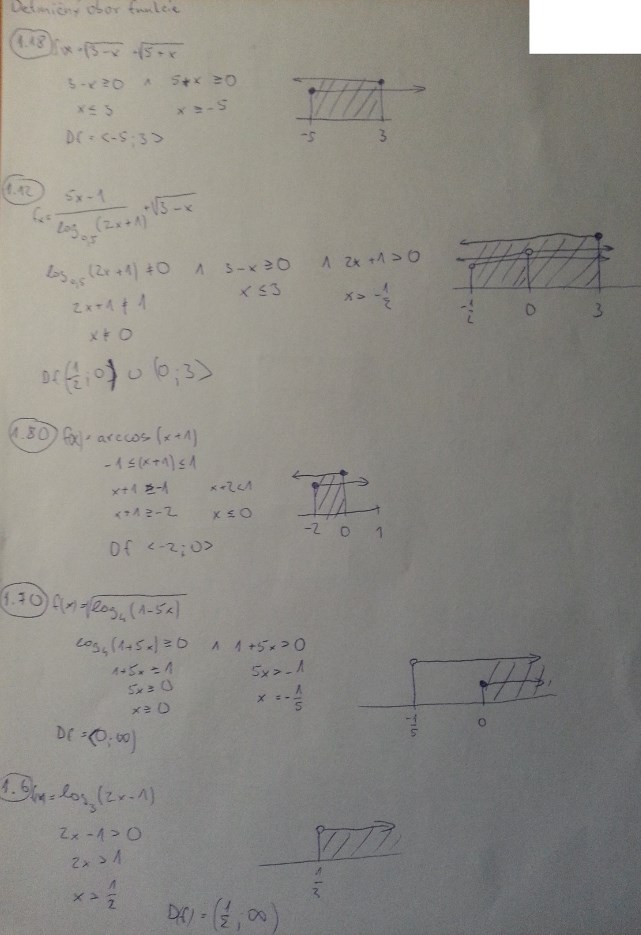 Definičný obor funkcie
1.18 fx = √3-x + √5+x
3-x ≥ 0 ∧ 5+x ≥ 0
x ≤ 3 x ≥ -5
Df = <-5; 3>
-5 3
1.12 fx = 5x-1 / log0,5 (2x+1) + √3-x
log0,5 (2x+1) ≠ 0 ∧ 3-x ≥ 0 ∧ 2x+1 > 0
2x+1 ≠ 1 x ≤ 3 x > -1/2
x ≠ 0
-1/2 0 3
Df (1/2; 0) ∪ (0; 3>
1.80 f(x) = arccos (x+1)
-1 ≤ (x+1) ≤ 1
x+1 ≥ -1
x ≤ 0
-2 0 1
Df <-2; 0>
1.70 f(x) = √log4 (1-5x)
log4 (1+5x) ≥ 0 ∧ 1+5x > 0
1+5x ≥ 1 5x > -1
5x ≥ 0 x = -1/5
x ≥ 0
-1/5 0
Df = (0; ∞)
1.6 fx = log3 (2x-1)
2x-1 > 0
2x > 1
x > 1/2
1/2
D(f) = (1/2; ∞)